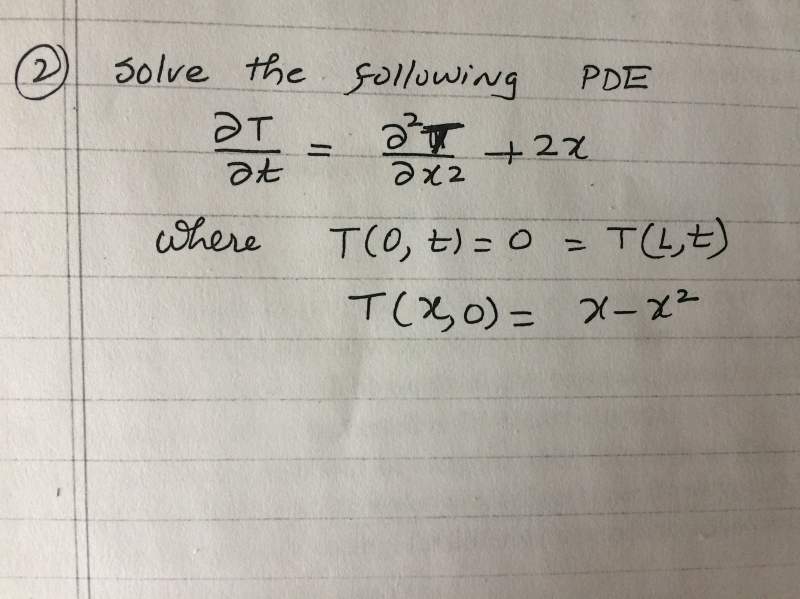 ② Solve the following PDE
∂T/∂t = ∂²T/∂x² + 2x
where T(0, t) = 0 = T(L, t)
T(x, 0) = x - x²